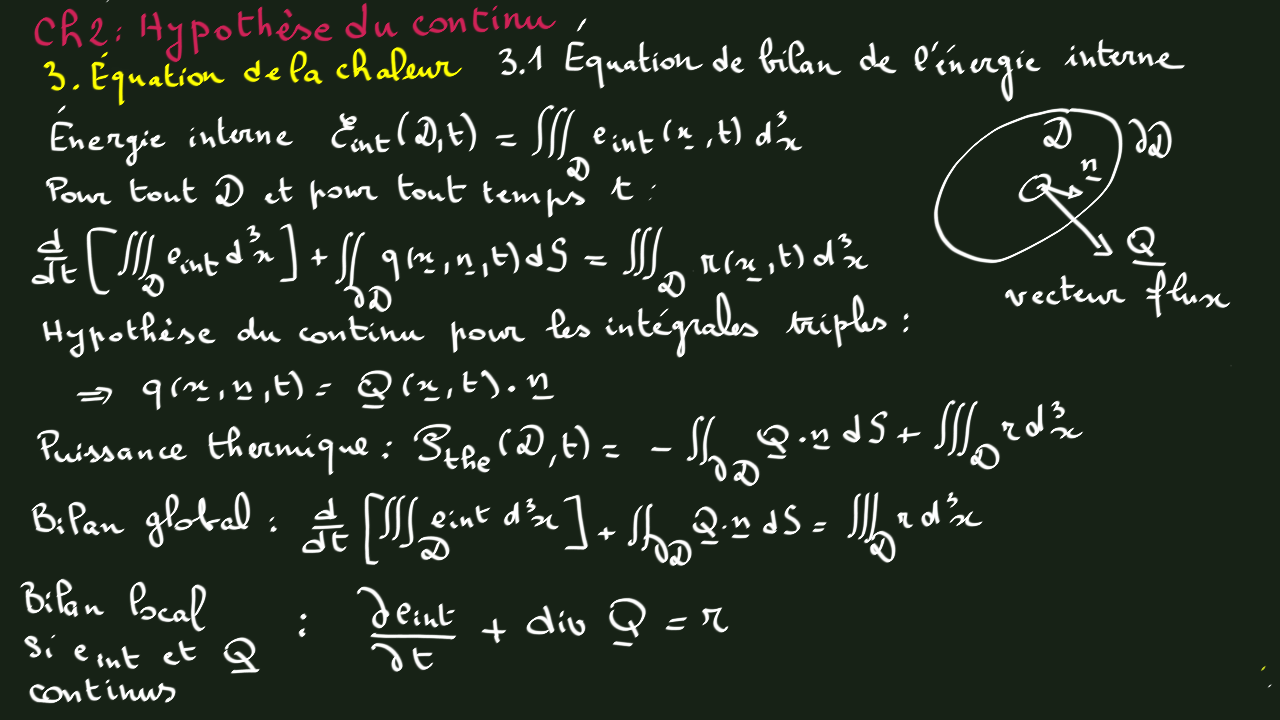 Ch2: Hypothèse du continu
3. Équation de la chaleur 3.1 Équation de bilan de l'énergie interne
Énergie interne ℰint(𝒟,t) = ∭_𝒟 eint(x̲,t) d³x
Pour tout 𝒟 et pour tout temps t :
d/dt [∭_𝒟 eint d³x] + ∬_∂𝒟 q(x̲,n̲,t) dS = ∭_𝒟 r(x̲,t) d³x
𝒟 ∂𝒟
n̲
Q̲
vecteur flux
Hypothèse du continu pour les intégrales triples :
⇒ q(x̲,n̲,t) = Q̲(x̲,t).n̲
Puissance thermique : 𝒫the(𝒟,t) = - ∬_∂𝒟 Q̲.n̲ dS + ∭_𝒟 r d³x
Bilan global : d/dt [∭_𝒟 eint d³x] + ∬_∂𝒟 Q̲.n̲ dS = ∭_𝒟 r d³x
Bilan local
si eint et Q̲
continus
: ∂eint/∂t + div Q̲ = r